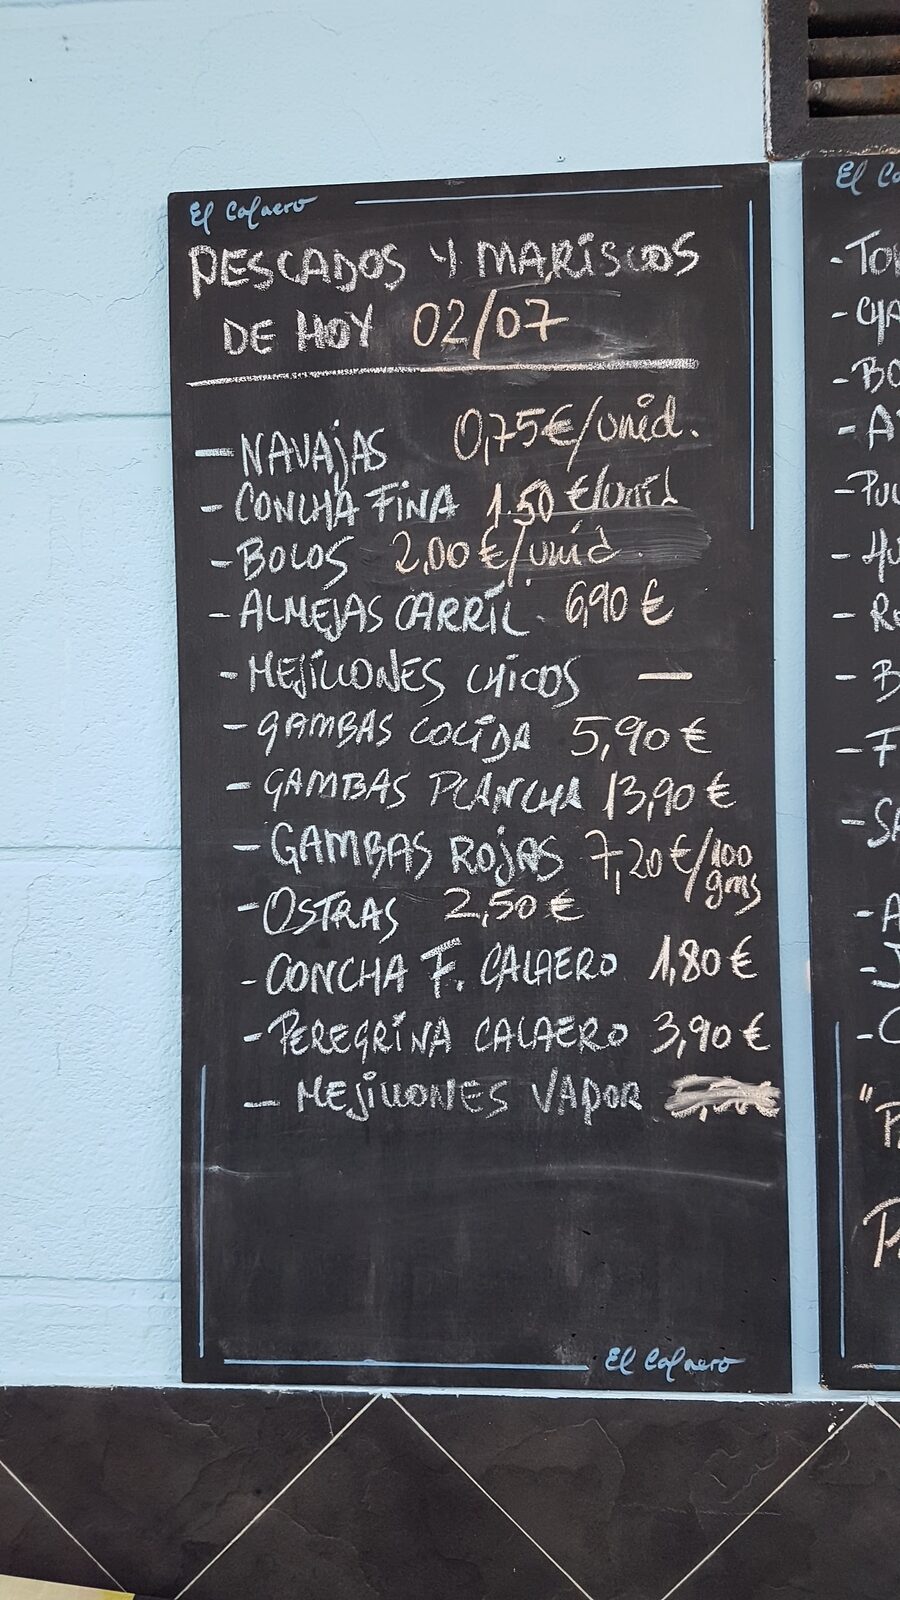 El Calaero
PESCADOS Y MARISCOS
DE HOY 02/07
- NAVAJAS 0,75€/unid.
- CONCHA FINA 1.50 €/unid
- BOLOS 2,00 €/unid.
- ALMEJAS CARRIL 6,90 €
- MEJILLONES CHICOS —
- GAMBAS COCIDA 5,90 €
- GAMBAS PLANCHA 13,90 €
- GAMBAS ROJAS 7,20€/100 gms
- OSTRAS 2,50 €
- CONCHA F. CALAERO 1,80 €
- PEREGRINA CALAERO 3,90 €
- MEJILLONES VAPOR
El Calaero
El